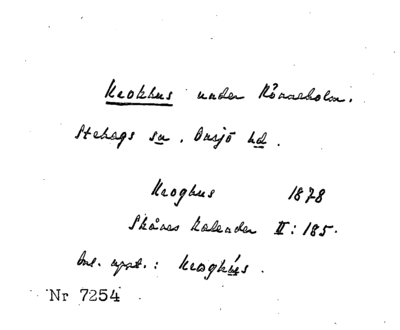 Krokhus under Rönneholm.
Stehags sn. Onsjö hd.
Kroghus 1878
Skånes Kalender II: 185.
Anl. uppt.: Kroghús.
Nr 7254